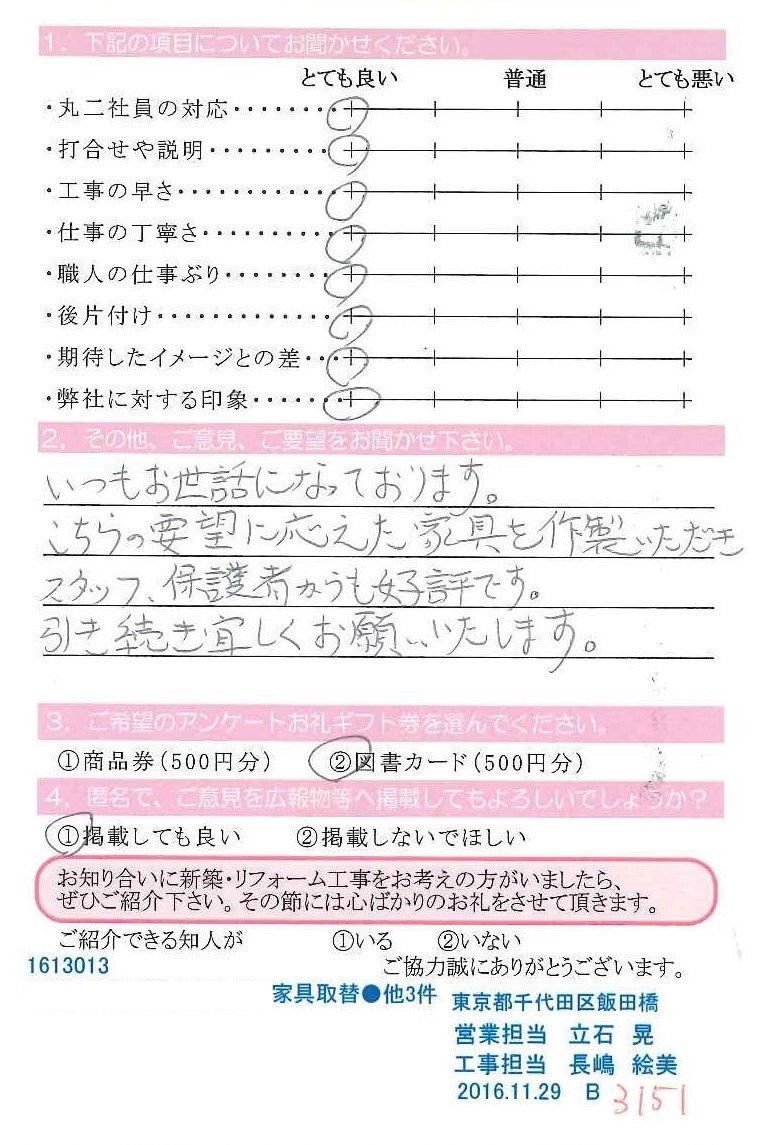 1. 下記の項目についてお聞かせください。
とても良い 普通 とても悪い
・丸二社員の対応········
・打合せや説明·········
・工事の早さ··········
・仕事の丁寧さ·········
・職人の仕事ぶり········
・後片付け············
・期待したイメージとの差···
・弊社に対する印象······
2. その他、ご意見、ご要望をお聞かせ下さい。
いつもお世話になっております。
こちらの要望に応えた家具を作製いただき
スタッフ、保護者からも好評です。
引き続き宜しくお願いいたします。
3. ご希望のアンケートお礼ギフト券を選んでください。
①商品券(500円分) ②図書カード(500円分)
4. 匿名で、ご意見を広報物等へ掲載してもよろしいでしょうか?
①掲載しても良い ②掲載しないでほしい
お知り合いに新築・リフォーム工事をお考えの方がいましたら、
ぜひご紹介下さい。その節には心ばかりのお礼をさせて頂きます。
ご紹介できる知人が ①いる ②いない
1613013 ご協力誠にありがとうございます。
家具取替●他3件 東京都千代田区飯田橋
営業担当 立石 晃
工事担当 長嶋 絵美
2016.11.29 B 3151